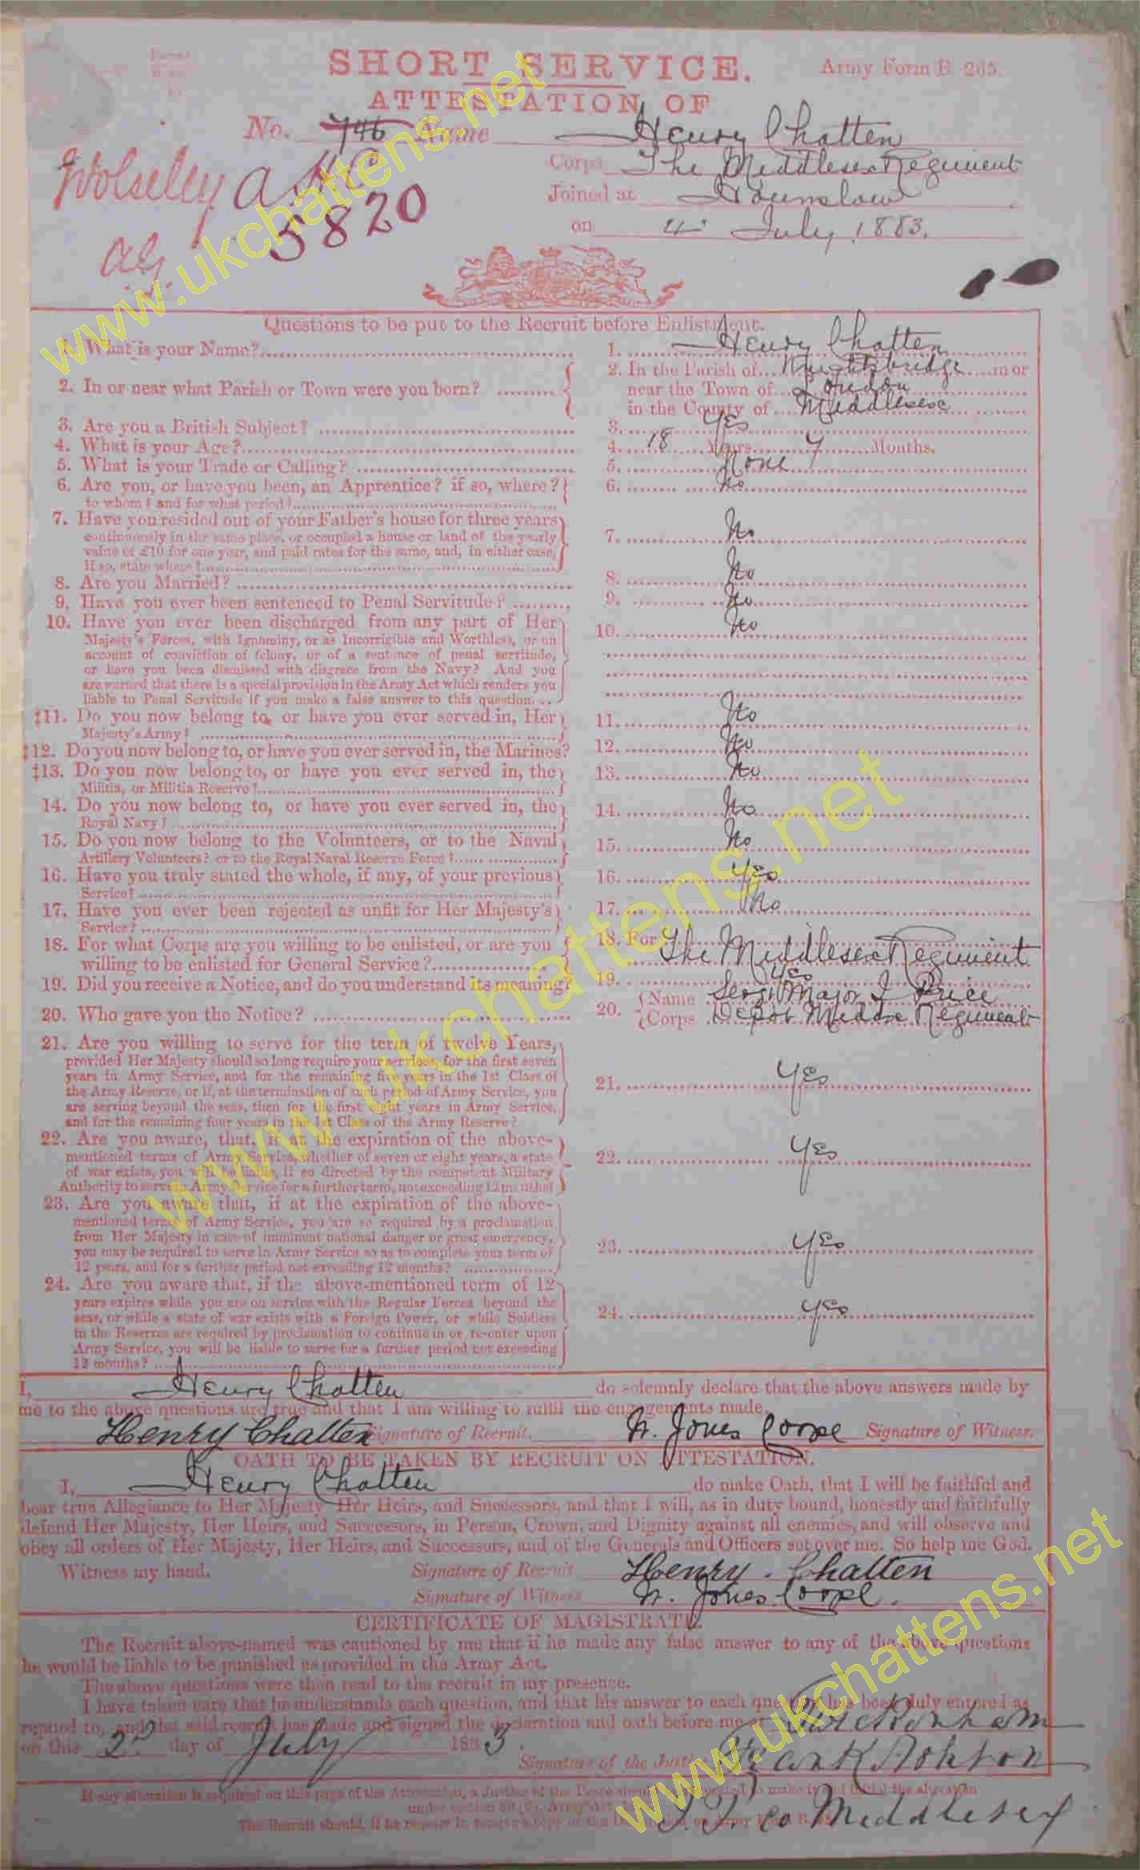 SHORT SERVICE.
Army Form B. 265.
ATTESTATION OF
No. 746 Name Henry Chatten
Corps The Middlesex Regiment
Joined at Hounslow
on 4 July 1883.
Wolseley
5820
Questions to be put to the Recruit before Enlistment.
1. What is your Name? 1. Henry Chatten
2. In or near what Parish or Town were you born? 2. In the Parish of Knightsbridge in or
near the Town of London
in the County of Middlesex
3. Are you a British Subject? 3. Yes
4. What is your Age? 4. 18 Years 7 Months.
5. What is your Trade or Calling? 5. None
6. Are you, or have you been, an Apprentice? if so, where? 6. No
to whom? and for what period?
7. Have you resided out of your Father's house for three years
continuously in the same place, or occupied a house or land of the yearly 7. No
value of £10 for one year, and paid rates for the same, and, in either case,
If so, state where?
8. Are you Married? 8. No
9. Have you ever been sentenced to Penal Servitude? 9. No
10. Have you ever been discharged from any part of Her 10. No
Majesty's Forces, with Ignominy, or as Incorrigible and Worthless, or on
account of conviction of felony, or of a sentence of penal servitude,
or have you been dismissed with disgrace from the Navy? And you
are warned that there is a special provision in the Army Act which renders you
liable to Penal Servitude if you make a false answer to this question.
‡11. Do you now belong to, or have you ever served in, Her 11. No
Majesty's Army?
‡12. Do you now belong to, or have you ever served in, the Marines? 12. No
‡13. Do you now belong to, or have you ever served in, the 13. No
Militia, or Militia Reserve?
14. Do you now belong to, or have you ever served in, the 14. No
Royal Navy?
15. Do you now belong to the Volunteers, or to the Naval 15. No
Artillery Volunteers? or to the Royal Naval Reserve Force?
16. Have you truly stated the whole, if any, of your previous 16. Yes
Service?
17. Have you ever been rejected as unfit for Her Majesty's 17. No
Service?
18. For what Corps are you willing to be enlisted, or are you 18. For The Middlesex Regiment
willing to be enlisted for General Service?
19. Did you receive a Notice, and do you understand its meaning? 19. Yes
20. Who gave you the Notice? 20. Name Sergt Major J Price
Corps Depot Middx Regiment
21. Are you willing to serve for the term of Twelve Years,
provided Her Majesty should so long require your services, for the first seven
years in Army Service, and for the remaining five years in the 1st Class of
the Army Reserve, or if, at the termination of such period of Army Service, you 21. Yes
are serving beyond the seas, then for the first eight years in Army Service,
and for the remaining four years in the 1st Class of the Army Reserve?
22. Are you aware, that, if at the expiration of the above-
mentioned terms of Army Service, whether of seven or eight years, a state 22. Yes
of war exists, you will be liable, if so directed by the competent Military
Authority to serve in Army Service for a further term, not exceeding 12 months?
23. Are you aware that, if at the expiration of the above-
mentioned terms of Army Service, you are so required by a proclamation
from Her Majesty in case of imminent national danger or great emergency, 23. Yes
you may be required to serve in Army Service so as to complete your term of
12 years, and for a further period not exceeding 12 months?
24. Are you aware that, if the above-mentioned term of 12
years expires while you are on service with the Regular Forces beyond the
seas, or while a state of war exists with a Foreign Power, or while Soldiers 24. Yes
in the Reserves are required by proclamation to continue in or re-enter upon
Army Service, you will be liable to serve for a further period not exceeding
12 months?
I, Henry Chatten do solemnly declare that the above answers made by
me to the above questions are true and that I am willing to fulfil the engagements made.
Henry Chatten Signature of Recruit. Jones Coope Signature of Witness.
OATH TO BE TAKEN BY RECRUIT ON ATTESTATION.
I, Henry Chatten do make Oath, that I will be faithful and
bear true Allegiance to Her Majesty Her Heirs, and Successors, and that I will, as in duty bound, honestly and faithfully
defend Her Majesty, Her Heirs, and Successors, in Person, Crown, and Dignity against all enemies, and will observe and
obey all orders of Her Majesty, Her Heirs, and Successors, and of the Generals and Officers set over me. So help me God.
Witness my hand. Signature of Recruit Henry Chatten
Signature of Witness Jones Coope.
CERTIFICATE OF MAGISTRATE.
The Recruit above-named was cautioned by me that if he made any false answer to any of the above questions
he would be liable to be punished as provided in the Army Act.
The above questions were then read to the recruit in my presence.
I have taken care that he understands each question, and that his answer to each question has been duly entered as
replied to, and the said recruit has made and signed the declaration and oath before me at Twickenham
on this 2nd day of July 1883.
Signature of the Justice
Co Middlesex
If any alteration is required on this page of the Attestation, a Justice of the Peace should be requested to make it and initial the alteration
under section 80 (6), Army Act
www.ukchattens.net
www.ukchattens.net
www.ukchattens.net